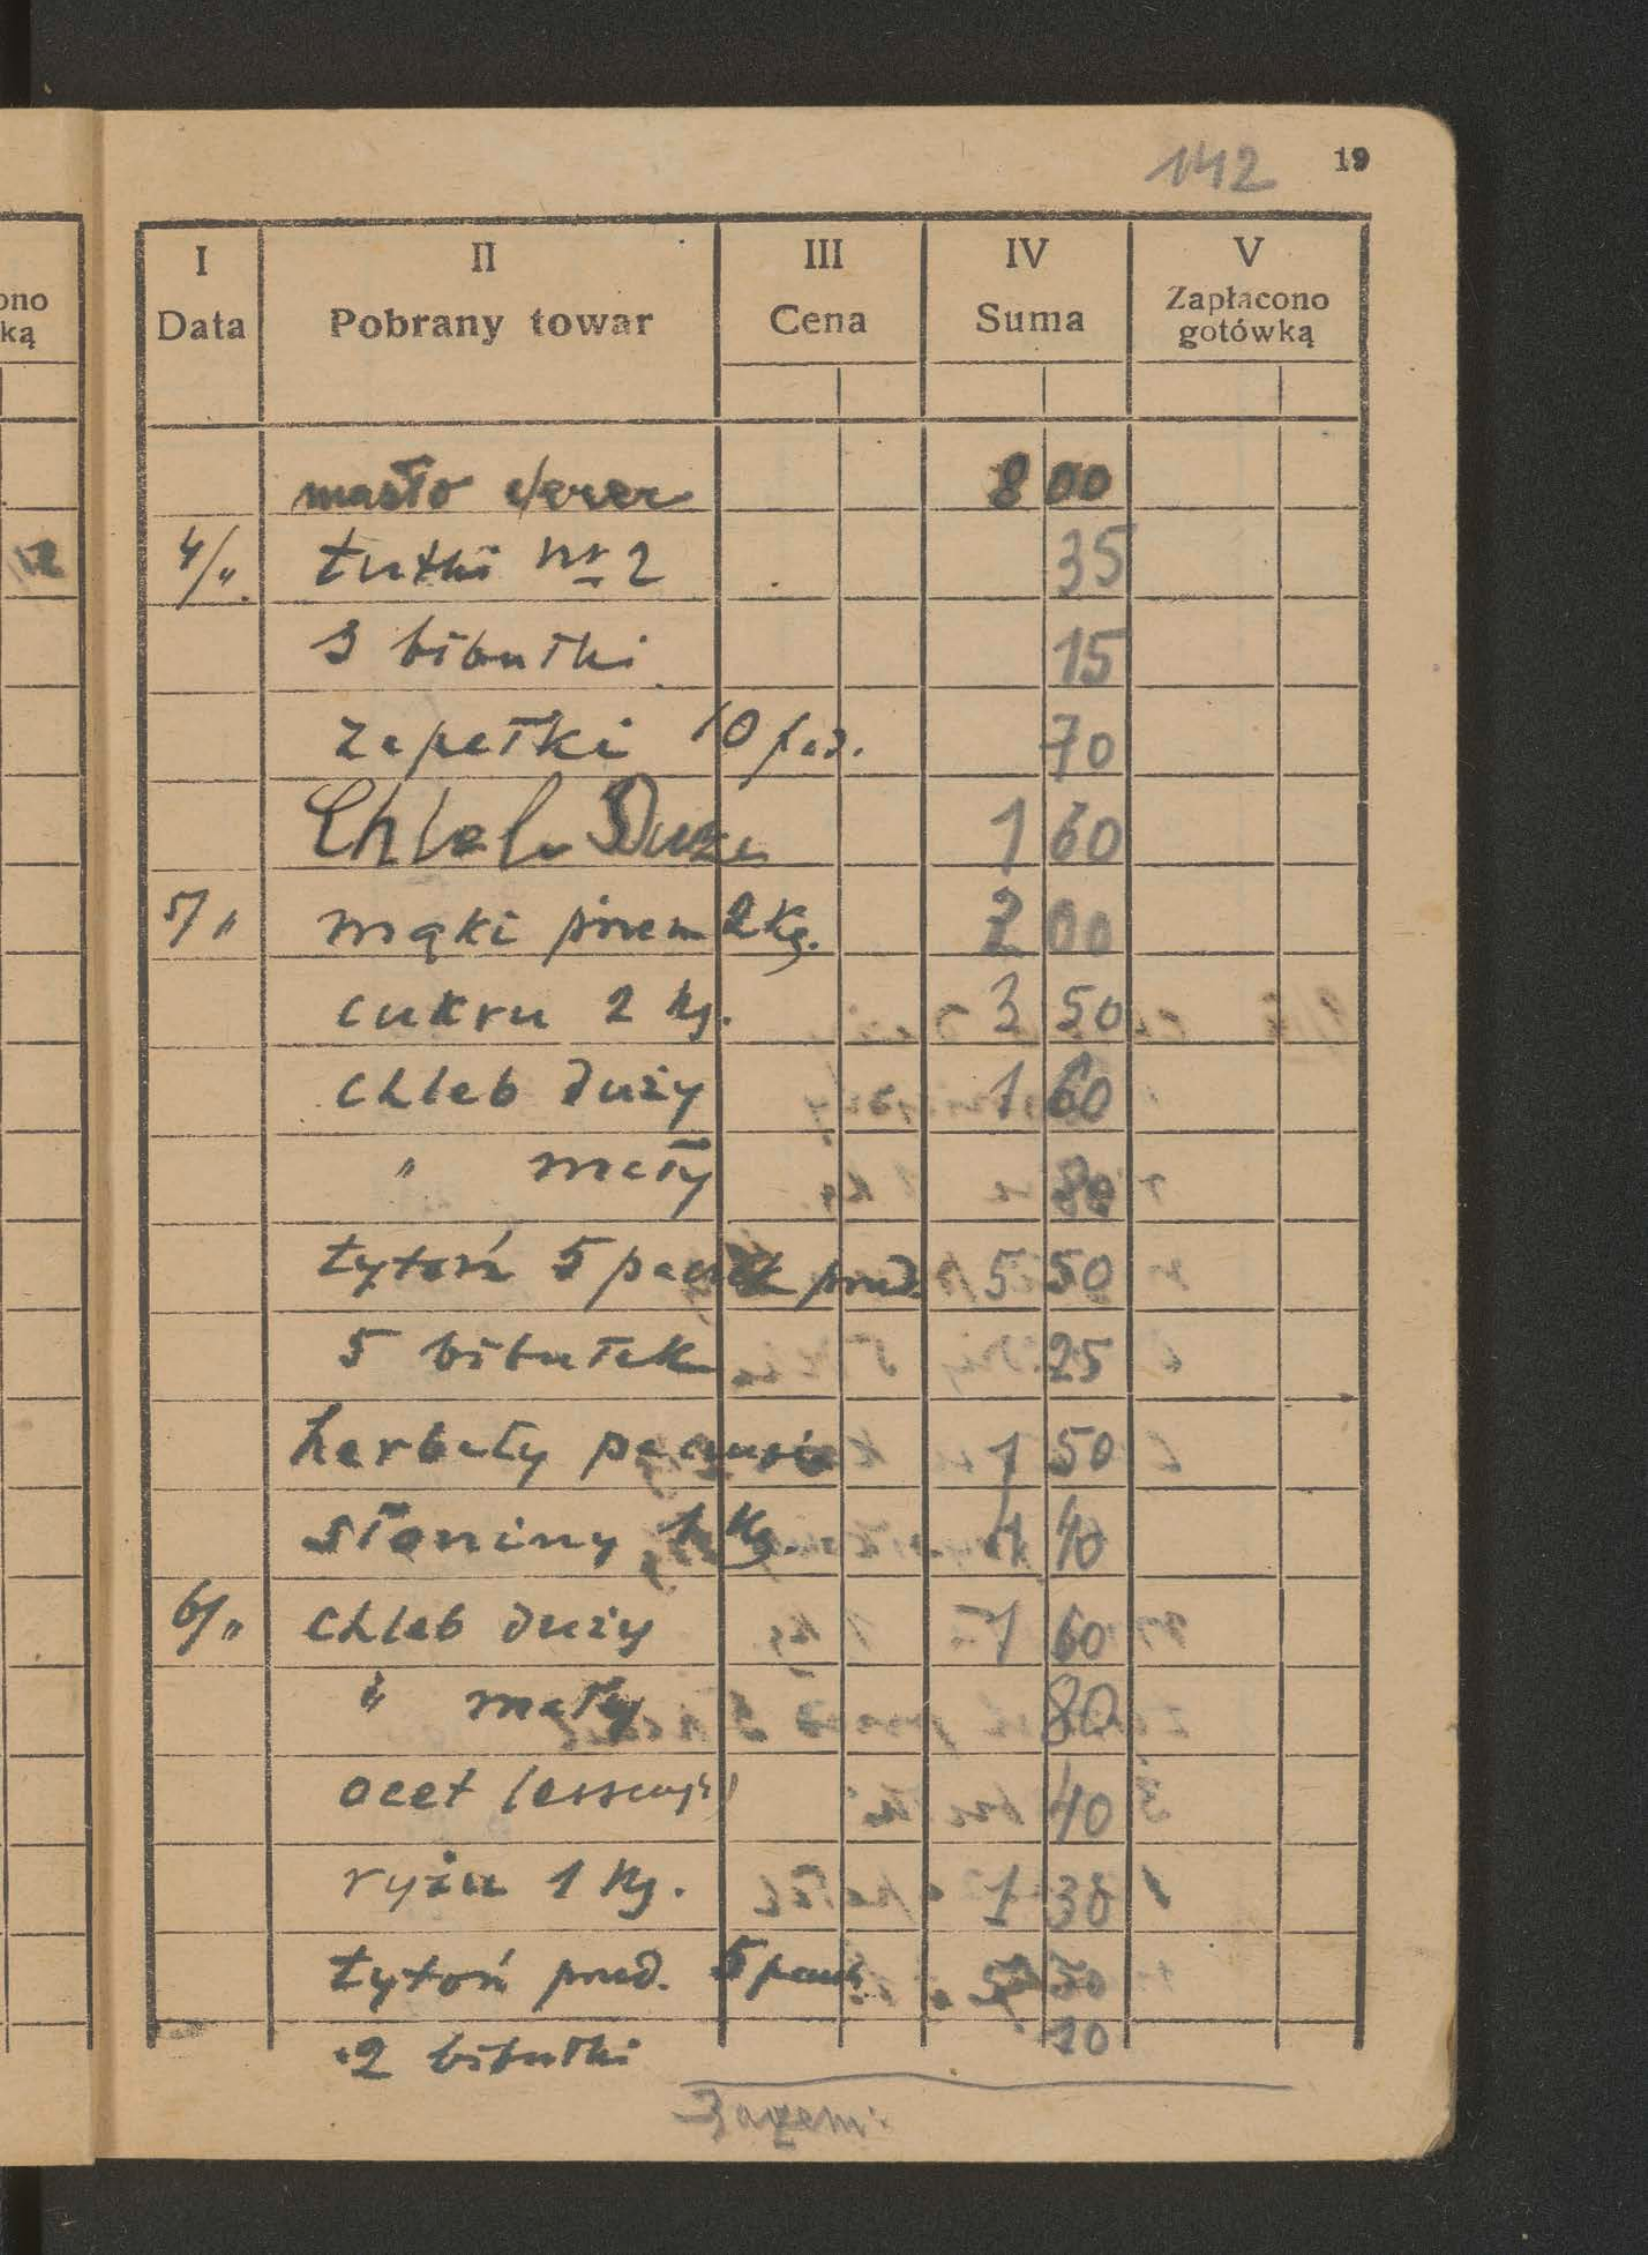 142 19
ono
ką
I II III IV V
Data Pobrany towar Cena Suma Zapłacono gotówką
masło 8 00
4/„ tutki nr 2 35
3 bibułki 15
zapałki 10 paz. 70
Chleb Duże 1 60
5/„ mąki pszem 2 kg. 2 00
cukru 2 kg. 3 50
chleb duży 1 60
„ mały 80
tytoń 5 paczek przed. 5 50
5 bibułek 25
herbaty paczusie 1 50
słoniny 1 kg. 1 40
6/„ chleb duży 1 60
„ mały 80
ocet 40
ryżu 1 kg. 1 30
tytoń przed. 5 paczk 5 50
2 bibułki 10
Razem: